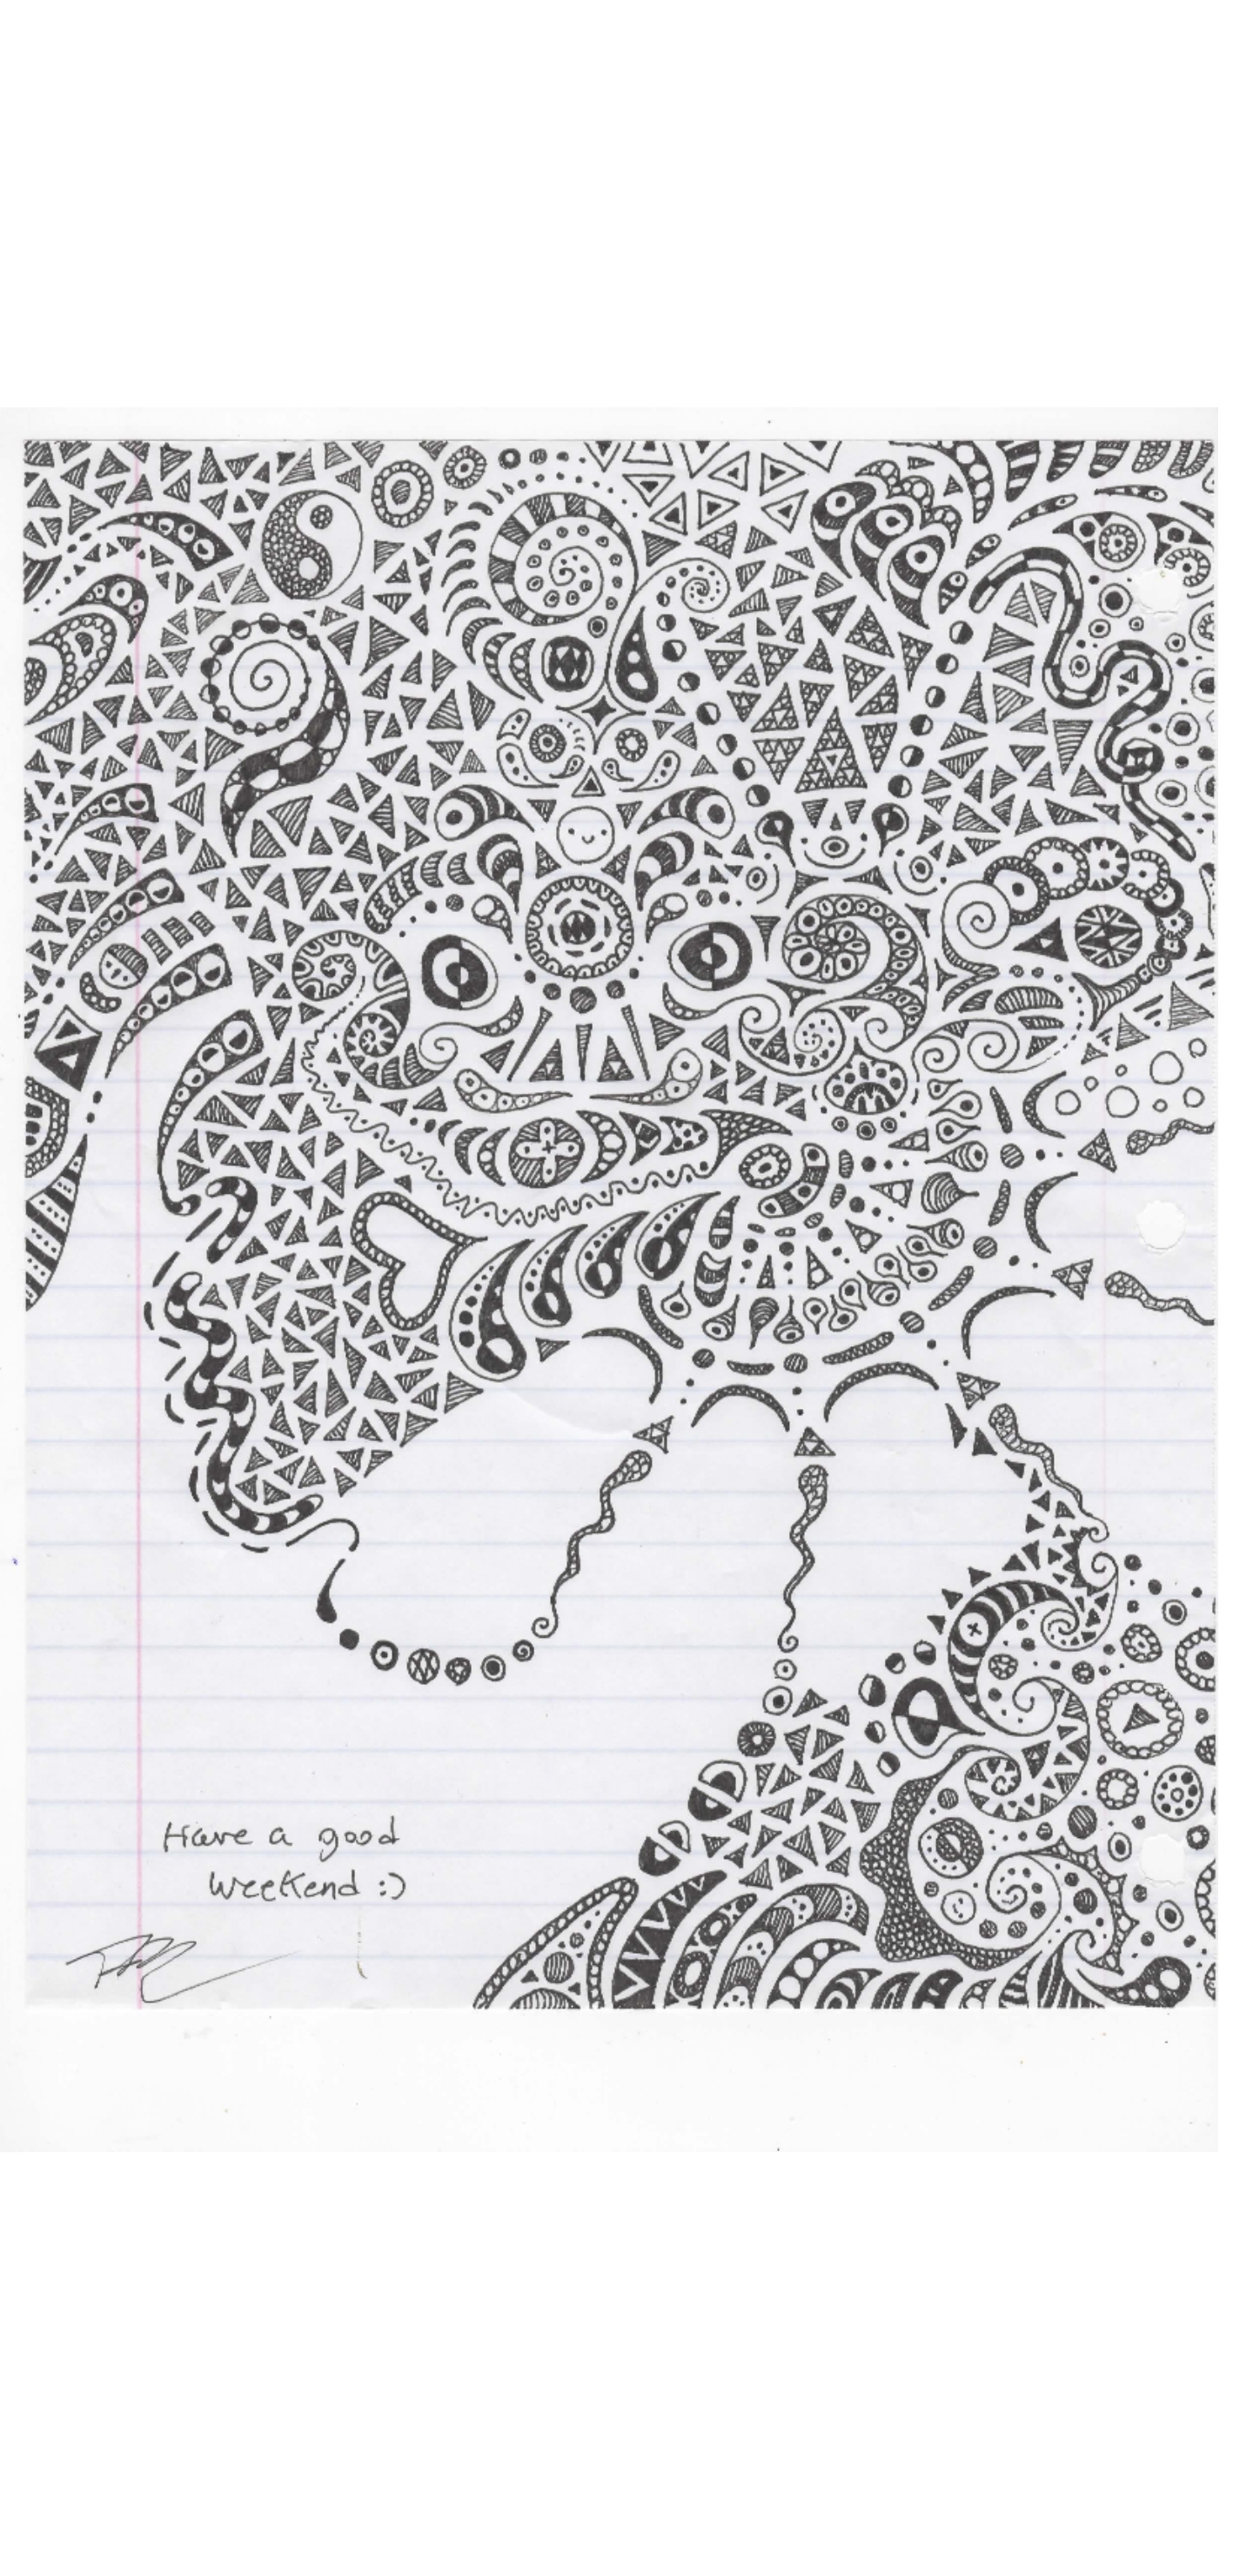 Have a good
weekend :)